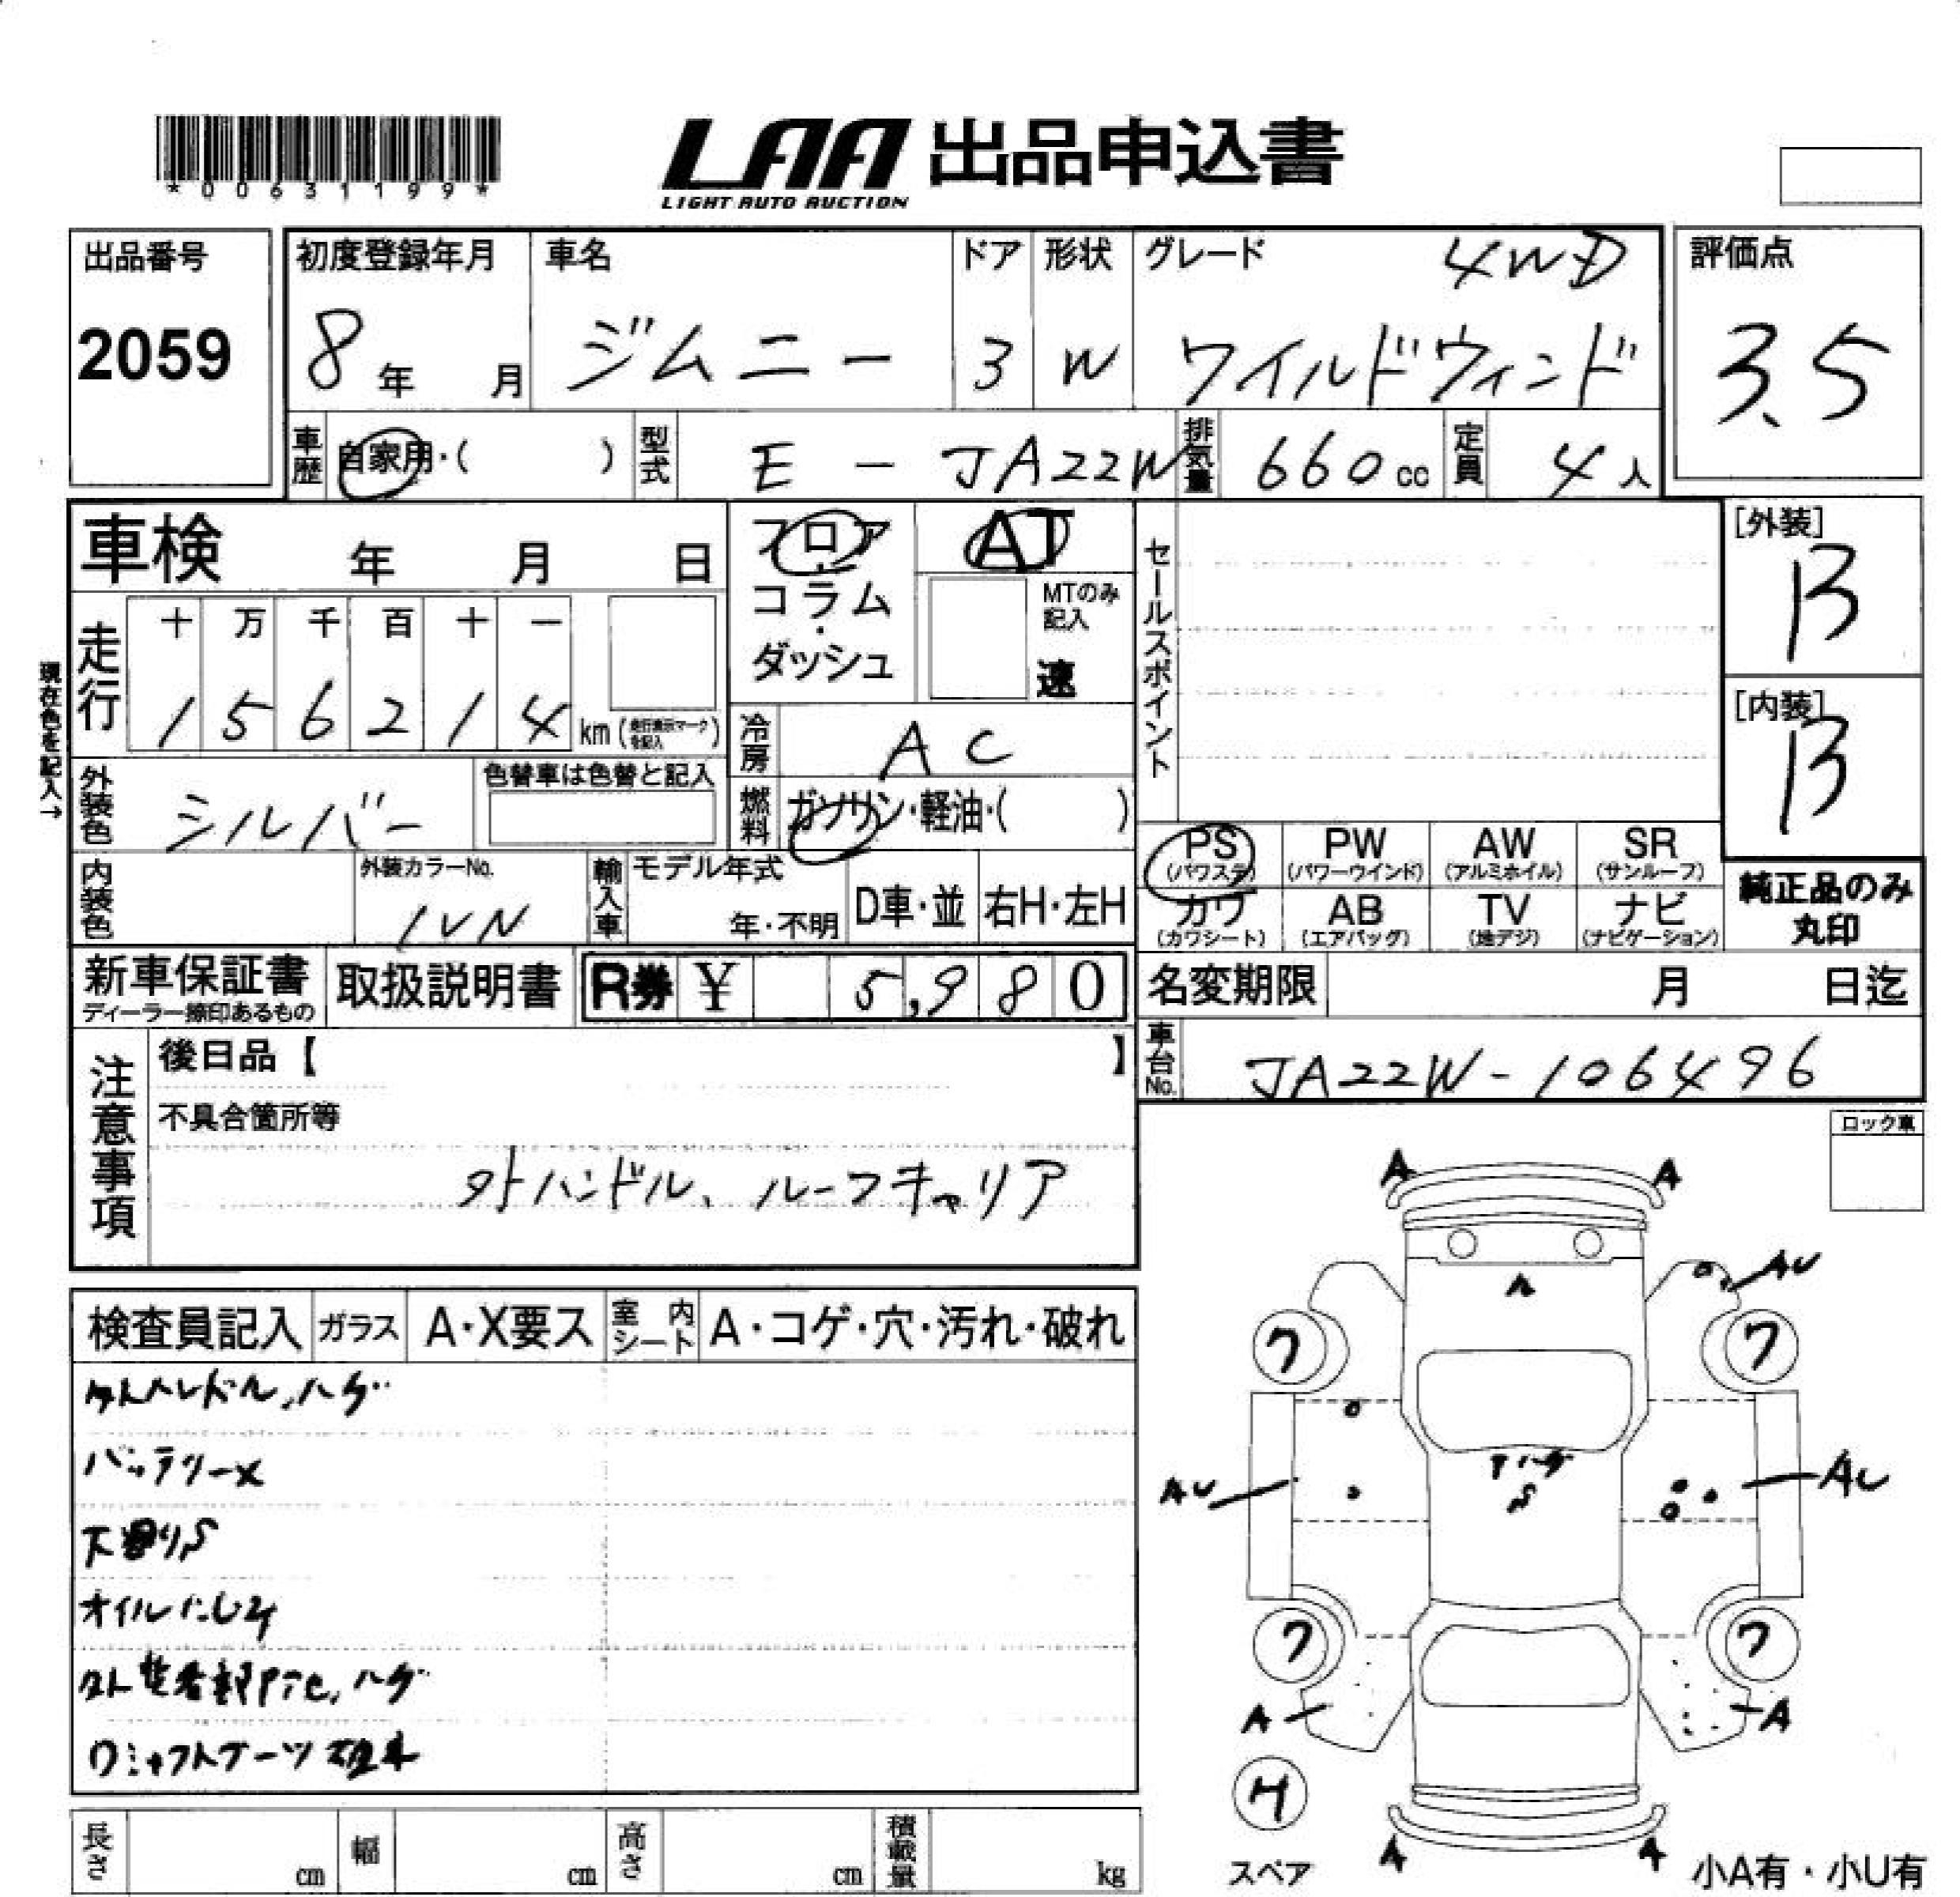 *00631199*
LAA 出品申込書
LIGHT AUTO AUCTION
出品番号
2059
初度登録年月
8年 月
車名
ジムニー
ドア
3
形状
W
グレード 4WD
ワイルドウィンド
評価点
3.5
車歴 自家用・( )
型式 E - JA22W
排気量 660cc
定員 4人
車検 年 月 日
フロア・コラム・ダッシュ
AT
MTのみ記入
速
セールスポイント
[外装]
B
[内装]
B
現在色を記入→
走行
十 万 千 百 十 一
1 5 6 2 1 4 km (走行表示マークを記入)
冷房 AC
外装色 シルバー
色替車は色替と記入
燃料 ガソリン・軽油・( )
内装色
外装カラーNo.
1VN
輸入車
モデル年式
年・不明
D車・並
右H・左H
PS (パワステ)
PW (パワーウインド)
AW (アルミホイル)
SR (サンルーフ)
カワ (カワシート)
AB (エアバッグ)
TV (地デジ)
ナビ (ナビゲーション)
純正品のみ
丸印
新車保証書
ディーラー捺印あるもの
取扱説明書
R券 ¥ 5,980
名変期限 月 日迄
車台No. JA22W-106496
注意事項
後日品【 】
不具合箇所等
外ハンドル、ルーフキャリア
ロック車
検査員記入
ガラス A・X要ス
室内シート A・コゲ・穴・汚れ・破れ
外ハンドル、ハゲ
バッテリーX
下廻りS
オイルにじみ
ハゲ
シャフトブーツ
A A
A
AU
ワ ワ
ハゲ
S
AU AU
ワ ワ
A A
スペア
A A
小A有・小U有
長さ cm
幅 cm
高さ cm
積載量 kg